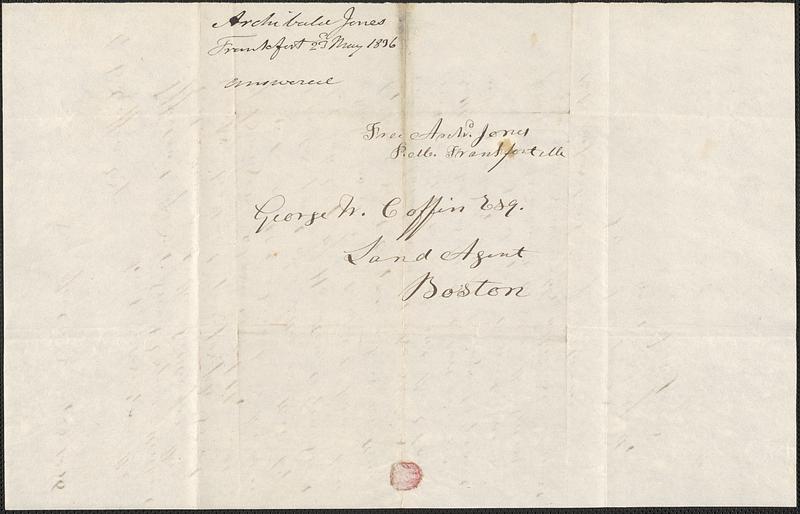 Archibald Jones
Frankfort 23d May 1836
answered
Free Archd. Jones
P.M. Frankfort Me
George W. Coffin Esq.
Land Agent
Boston